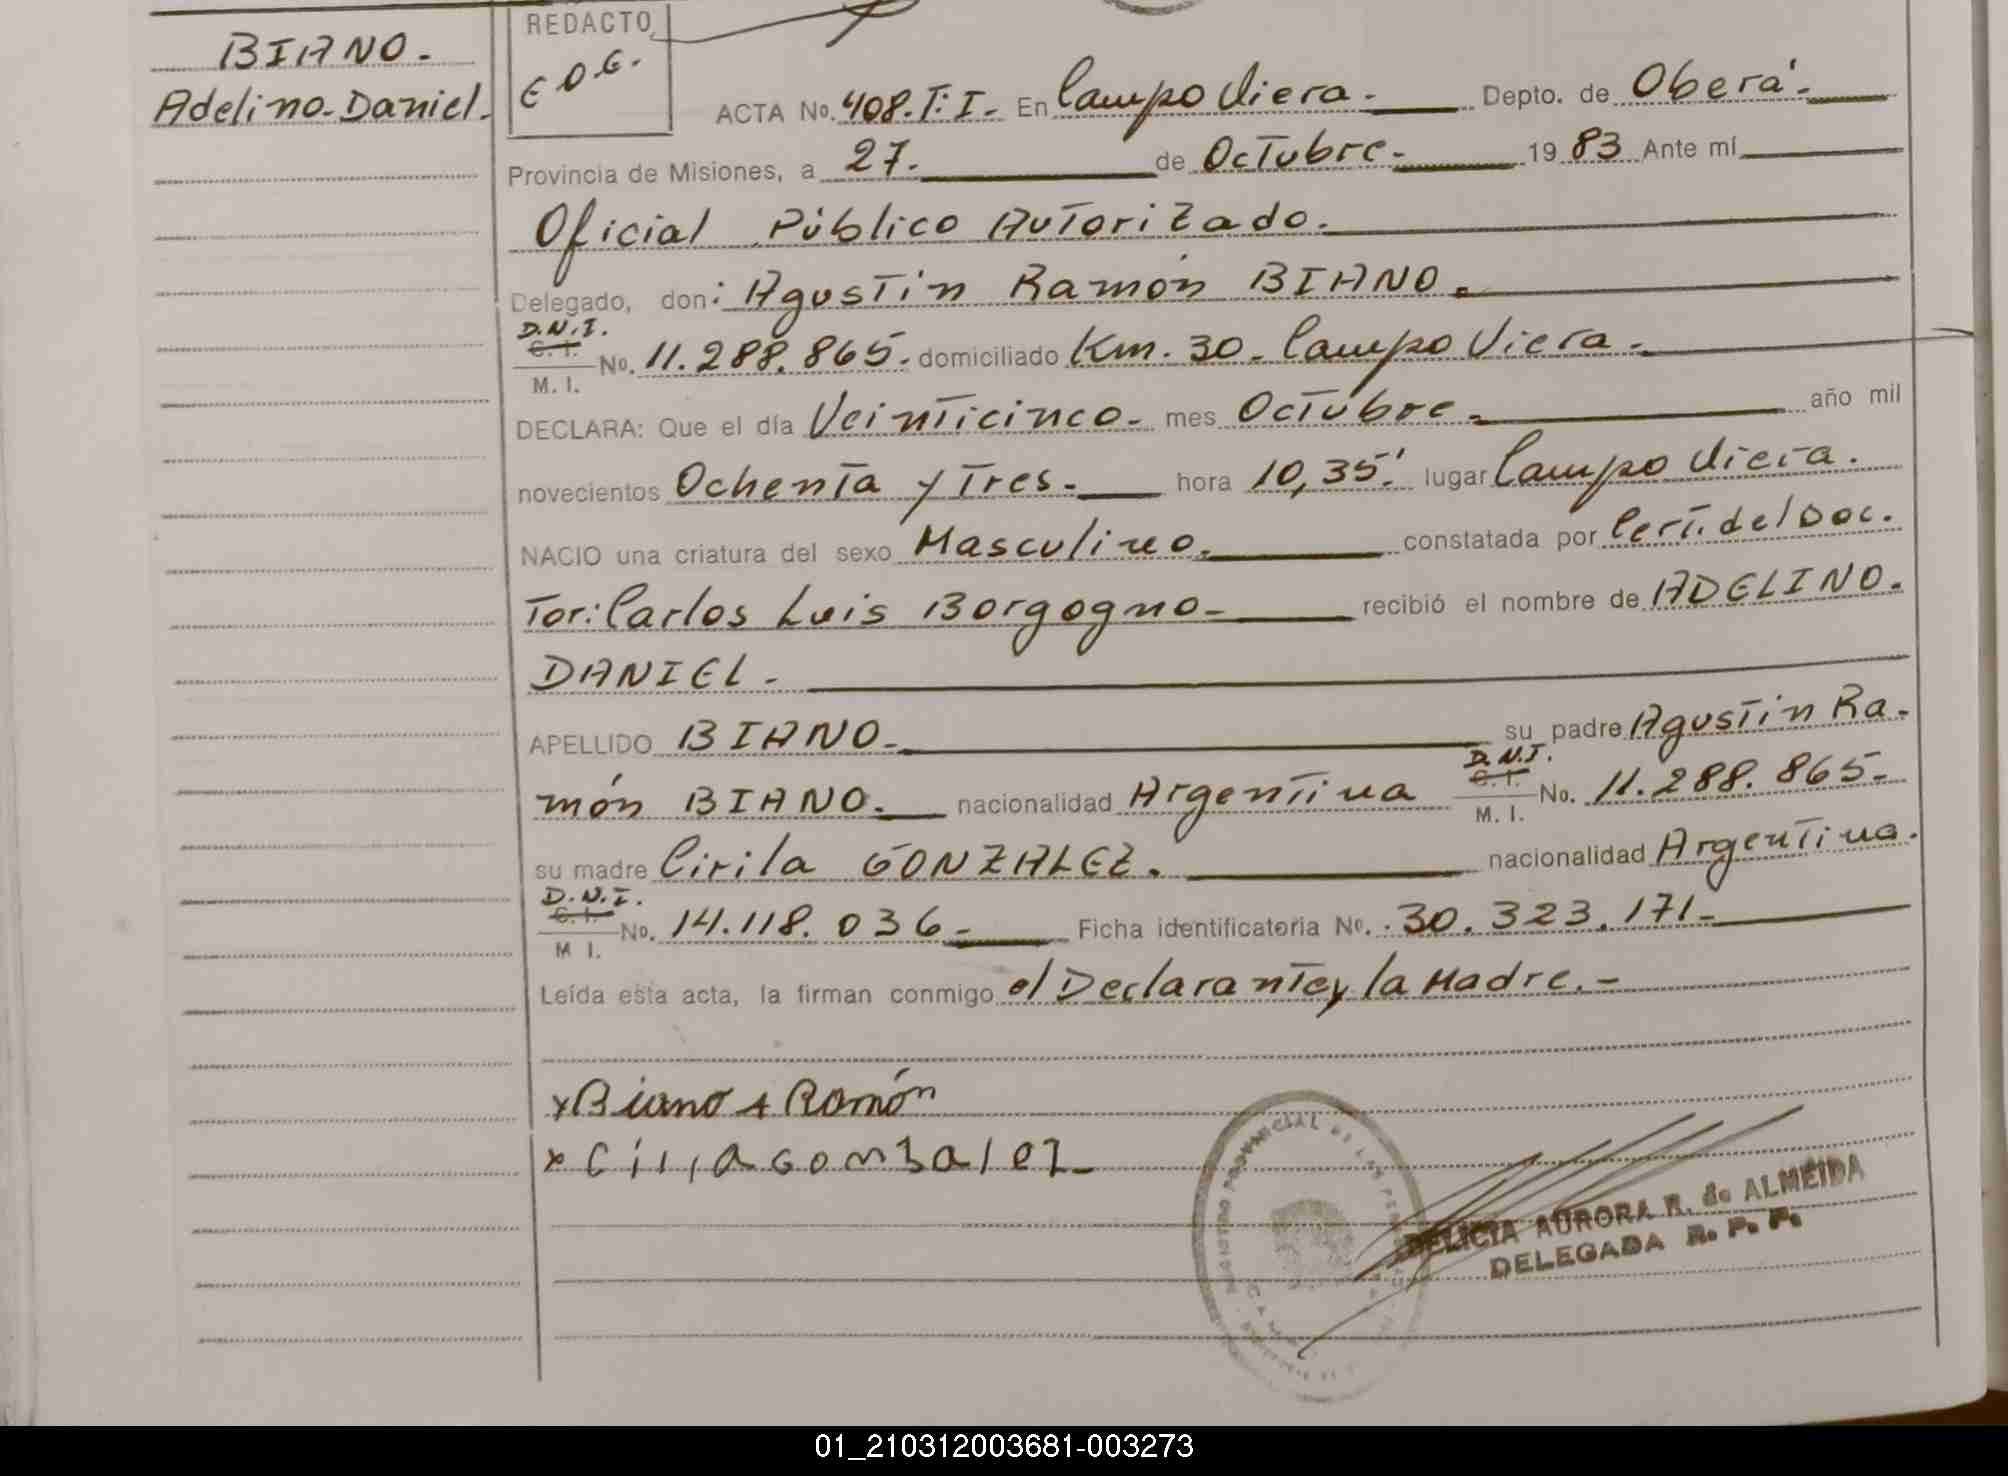 BIANO.
Adelino-Daniel.
REDACTO
E O G.
ACTA No. 408.T.I. En Campo Viera. Depto. de Oberá.
Provincia de Misiones, a 27. de Octubre. 1983 Ante mí
Oficial Público Autorizado.
Delegado, don: Agustín Ramón BIANO.
D.N.I.
C. I. No. 11.288.865. domiciliado Km. 30. Campo Viera.
M. I.
DECLARA: Que el día Veinticinco. mes Octubre. año mil
novecientos Ochenta y Tres. hora 10,35' lugar Campo Viera.
NACIO una criatura del sexo Masculino. constatada por Cert. del Doc.
Tor: Carlos Luis Borgogno recibió el nombre de ADELINO.
DANIEL.
APELLIDO BIANO su padre Agustín Ra-
món BIANO. nacionalidad Argentina D.N.I. C. I. M. I. No. 11.288.865.
su madre Cirila GONZALEZ. nacionalidad Argentina.
D.N.I.
C. I. No. 14.118.036 Ficha identificatoria No. 30.323.171
M I.
Leída esta acta, la firman conmigo el Declarante y la Madre.
x Biano A Ramón
x Cirila Gonzalez
REGISTRO PROVINCIAL DE LAS PERSONAS
DELICIA AURORA R. de ALMEIDA
DELEGADA R. P. P.
01_210312003681-003273